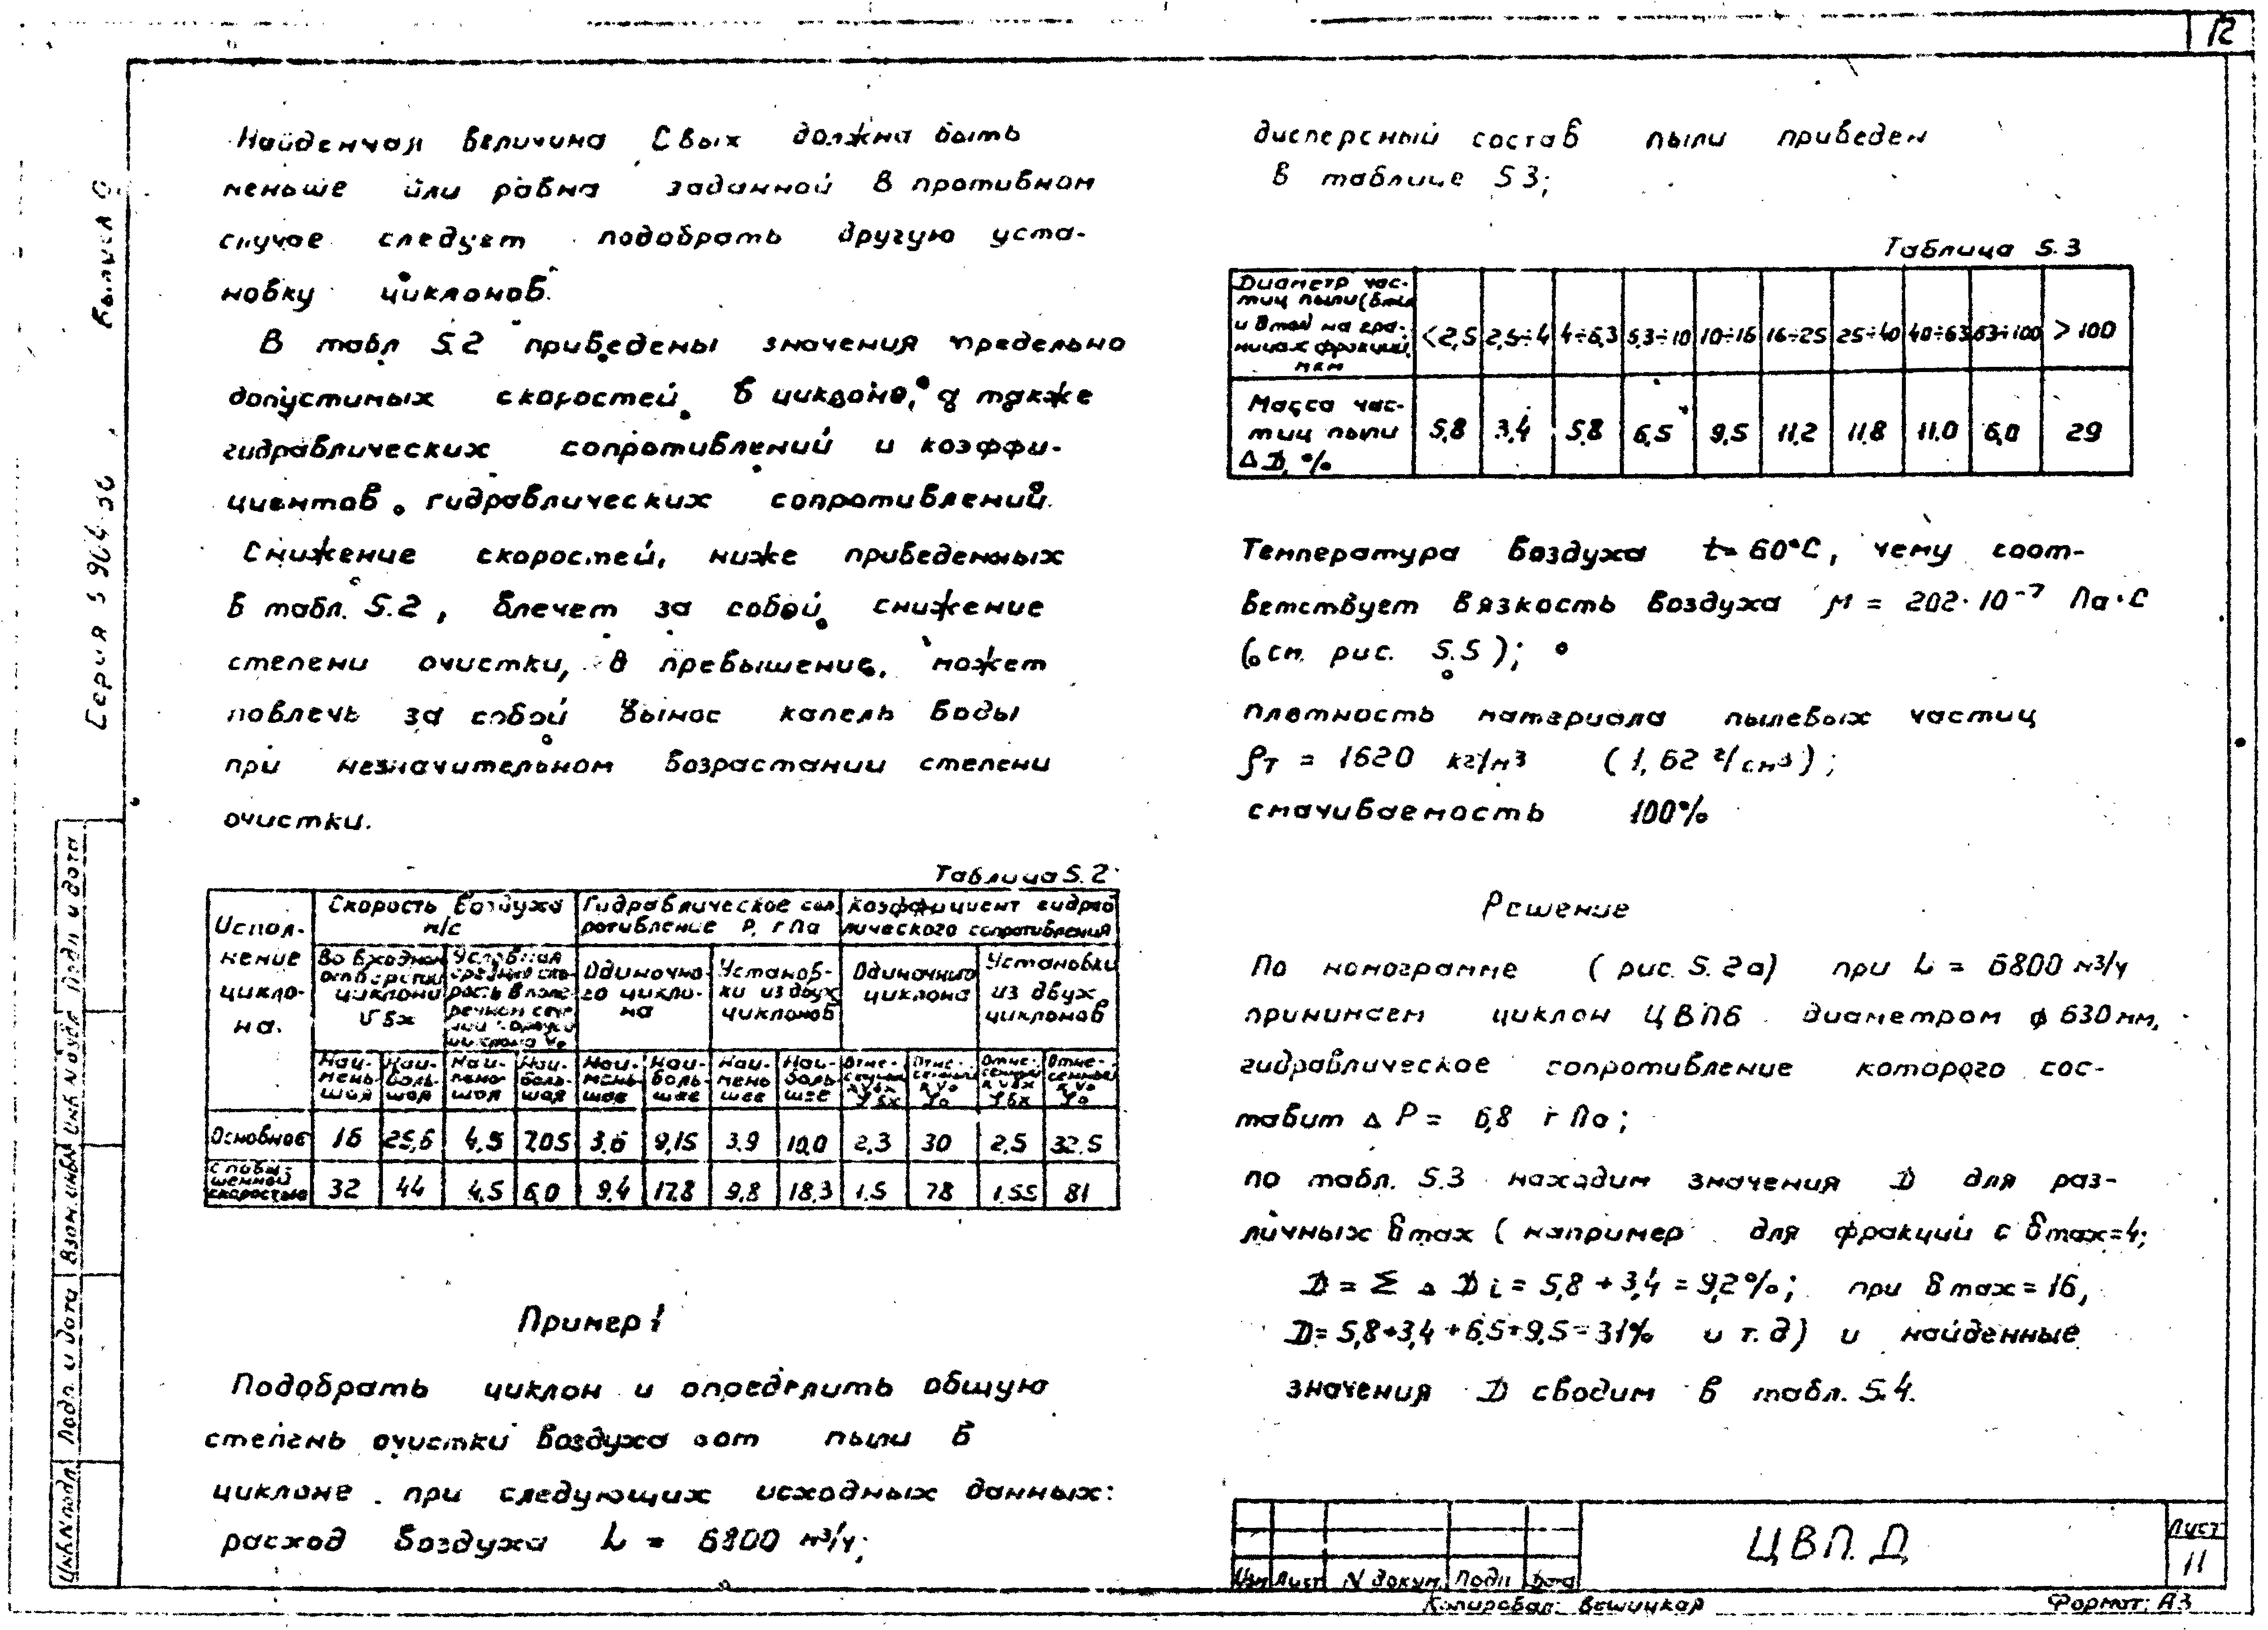 12
Найденная величина Cвых должна быть
меньше или равна заданной в противном
случае следует подобрать другую уста-
новку циклонов.
В табл 5.2 приведены значения предельно
допустимых скоростей в циклоне, а также
гидравлических сопротивлений и коэффи-
циентов гидравлических сопротивлений.
Снижение скоростей, ниже приведенных
в табл. 5.2, влечет за собой снижение
степени очистки, а превышение, может
повлечь за собой вынос капель воды
при незначительном возрастании степени
очистки.
Таблица 5.2
Испол-
нение
цикло-
на.
Скорость воздуха
м/с
Гидравлическое соп-
ротивление P, гПа
Коэффициент гидрав
лического сопротивления
Во входном
отверстии
циклона
Vвх
Условная
средняя ско-
рость в попе-
речном сече-
нии корпуса
циклона V₀
Одиночно-
го цикло-
на
Установ-
ки из двух
циклонов
Одиночного
циклона
Установки
из двух
циклонов
Наи-
мень
шая
Наи-
боль-
шая
Наи-
мень-
шая
Наи-
боль-
шая
Наи-
мень-
шее
Наи-
боль-
шее
Наи-
мень
шее
Наи-
боль
шее
Отне-
сенный
к Vвх
ζвх
Отне-
сенный
к V₀
ζ₀
Отне-
сенный
к Vвх
ζвх
Отне-
сенный
к V₀
ζ₀
Основное 16 25,6 4,5 7,05 3,6 9,15 3,9 10,0 2,3 30 2,5 32,5
с повы-
шенной
скоростью 32 44 4,5 6,0 9,4 17,8 9,8 18,3 1.5 78 1.55 81
Пример 1
Подобрать циклон и определить общую
степень очистки воздуха от пыли в
циклоне при следующих исходных данных:
расход воздуха L = 6800 м³/ч;
дисперсный состав пыли приведен
в таблице 5 3;
Таблица 5.3
Диаметр час-
тиц пыли (δmin
и δmax) на гра-
ницах фракций,
мкм
<2,5 2,5÷4 4÷6,3 6,3÷10 10÷16 16÷25 25÷40 40÷63 63÷100 >100
Масса час-
тиц пыли
Δ D, %
5,8 3,4 5,8 6,5 9,5 11,2 11,8 11.0 6,0 29
Температура воздуха t= 60°C, чему соот-
ветствует вязкость воздуха μ = 202·10⁻⁷ Па·с
(см. рис. 5.5);
плотность материала пылевых частиц
ρт = 1620 кг/м³ (1,62 г/см³);
смачиваемость 100%
Решение
По номограмме (рис. 5.2а) при L = 6800 м³/ч
принимаем циклон ЦВП6 диаметром ф 630 мм,
гидравлическое сопротивление которого сос-
тавит Δ P = 6,8 гПа;
по табл. 5.3 находим значения D для раз-
личных δmax ( например для фракций с δmax=4;
D = Σ Δ D i = 5,8 + 3,4 = 9,2%; при δmax = 16,
D= 5,8+3,4 + 6,5+9,5=31% и т.д) и найденные
значения D сводим в табл. 5.4.
Серия 5 904 50
Выпуск 0
Инв N подл
Подп. и дата
Взам. инв N
Инв N дубл
Подп и дата
ЦВП. Д
Лист
11
Изм Лист N докум. Подп Дата
Копировал: Вешицкая
Формат: А3